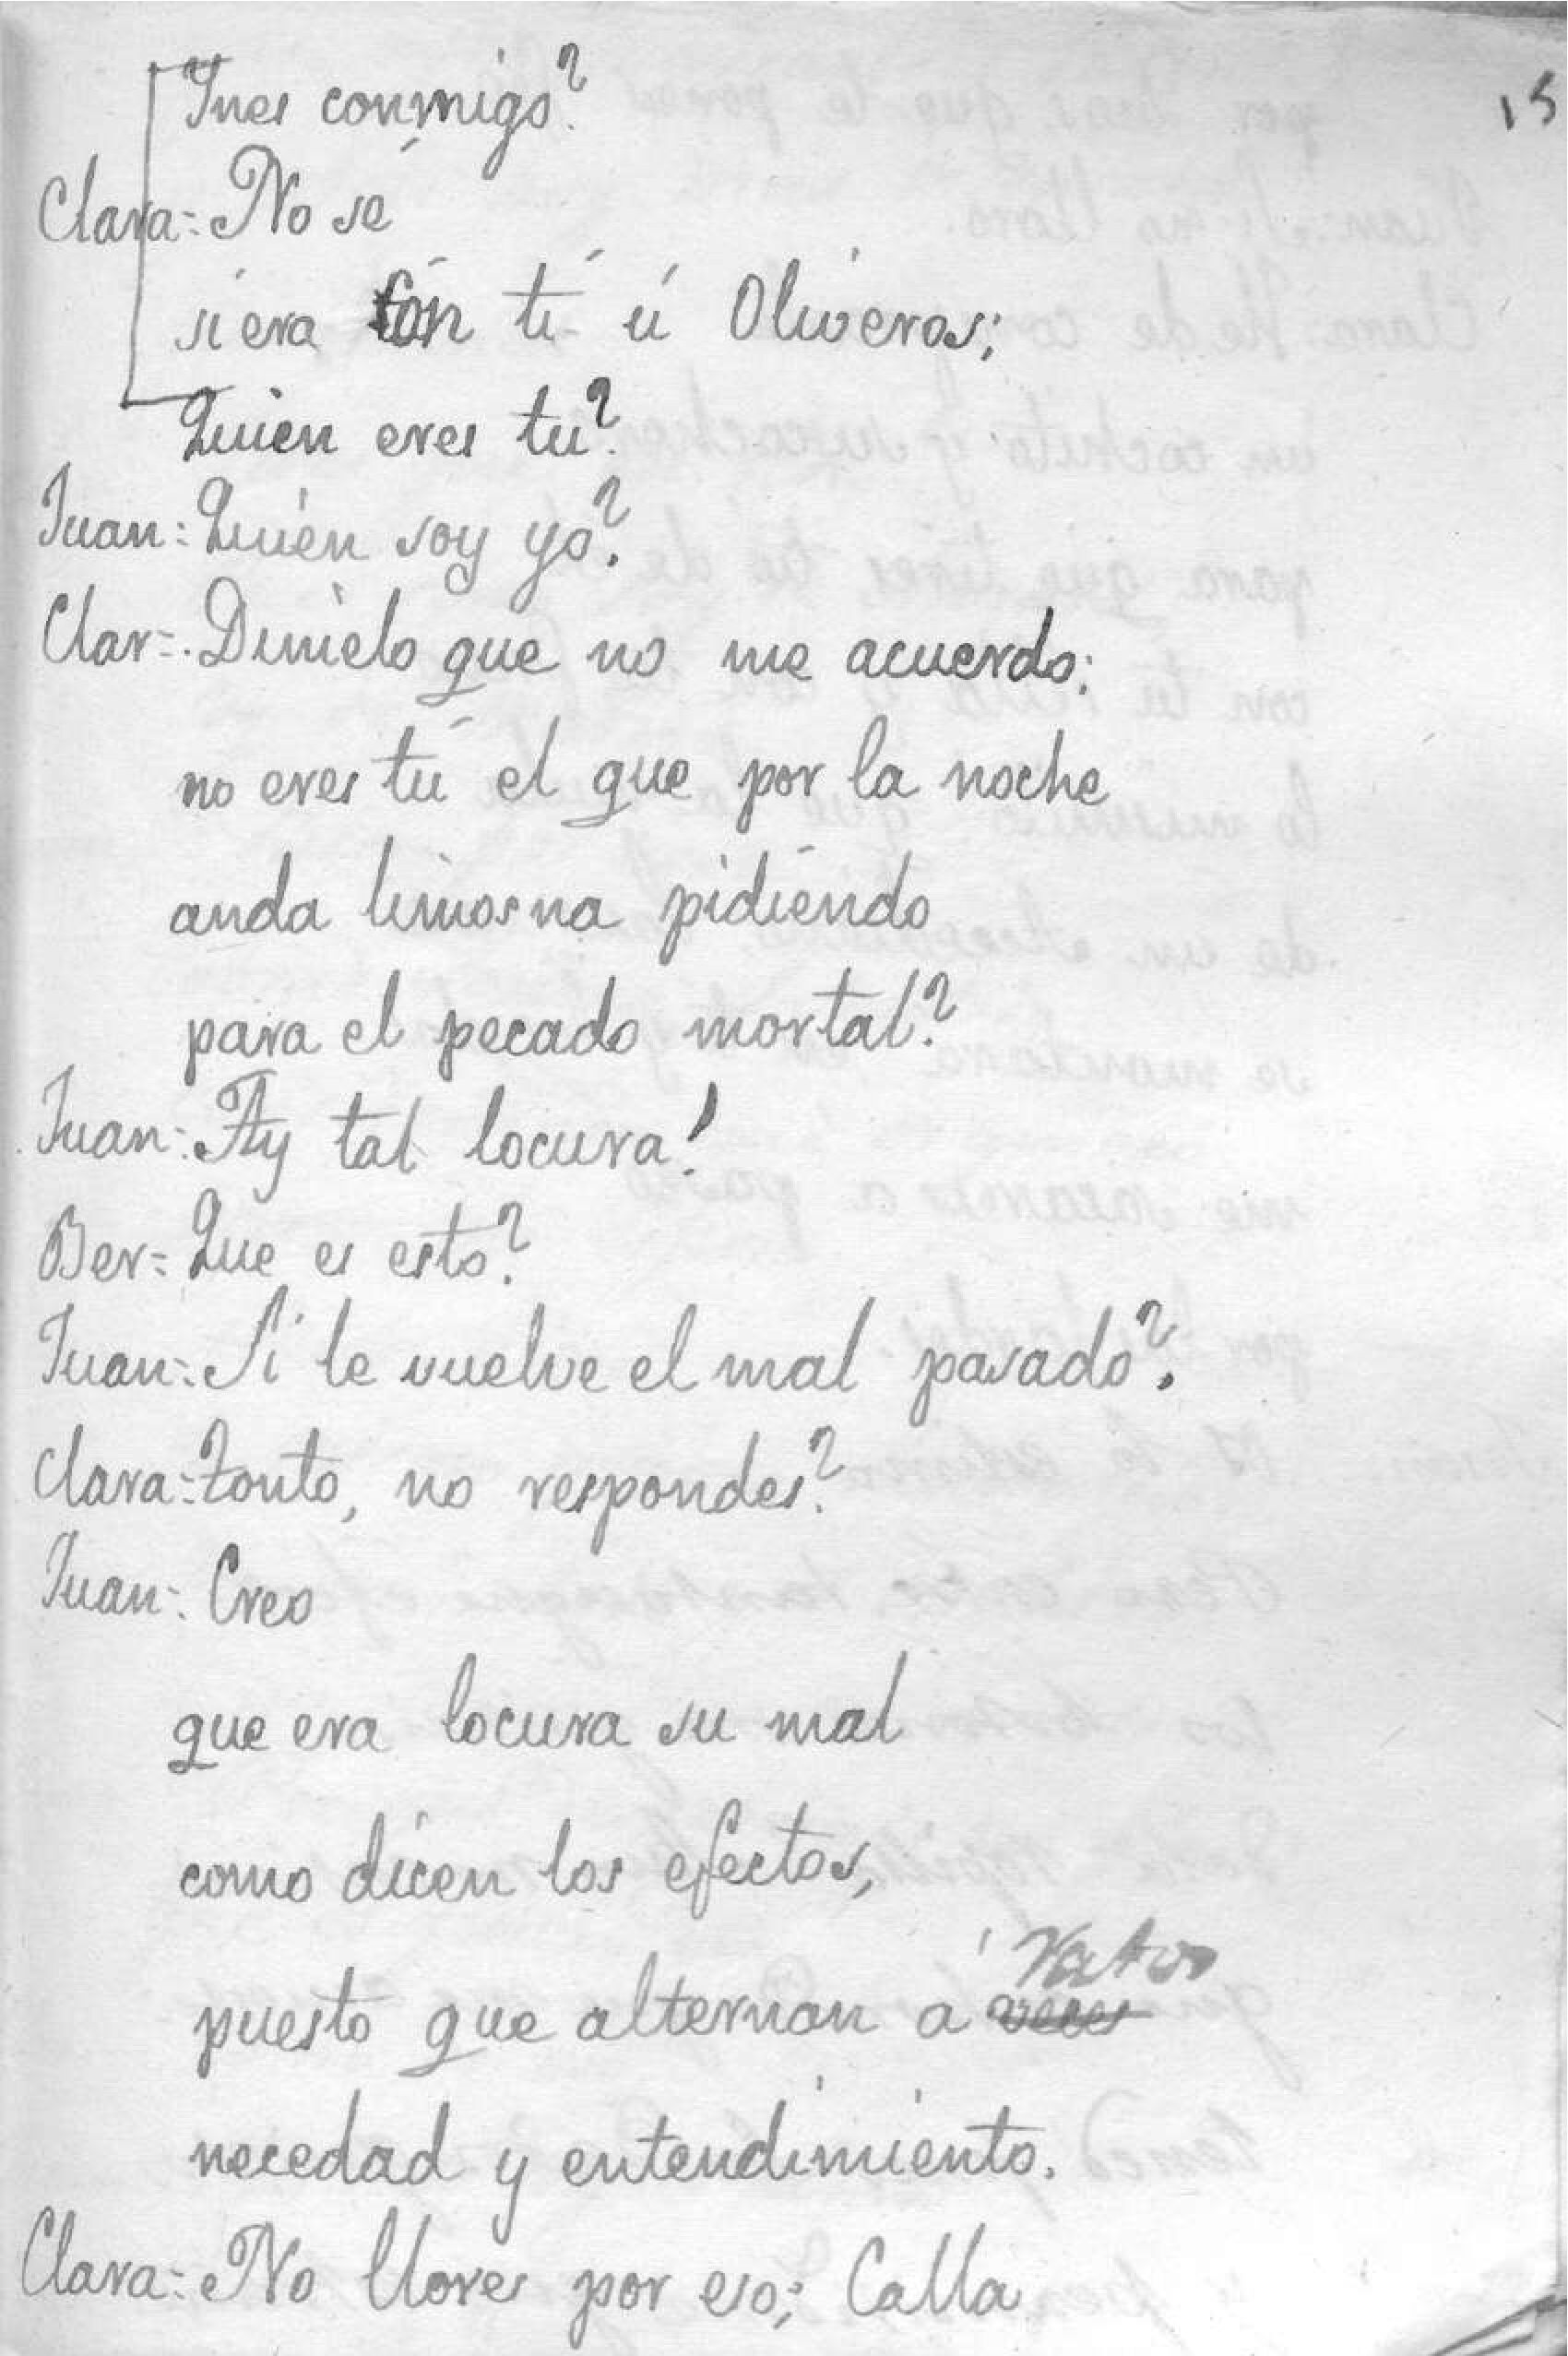 15
Ynes conmigo?
Clara= No sé
si era con tí ú Oliveros;
Quien eres tu?
Juan: Quien soy yo?
Clar=. Dimelo que no me acuerdo;
no eres tú el que por la noche
anda limosna pidiendo
para el pecado mortal?
Juan: Ay tal locura!
Ber= Que es esto?
Juan: Si le vuelve el mal pasado?
Clara= tonto, no respondes?
Juan: Creo
que era locura su mal
como dicen los efectos,
puesto que alternan á veces ratos
necedad y entendimiento.
Clara= No llores por eso; Calla